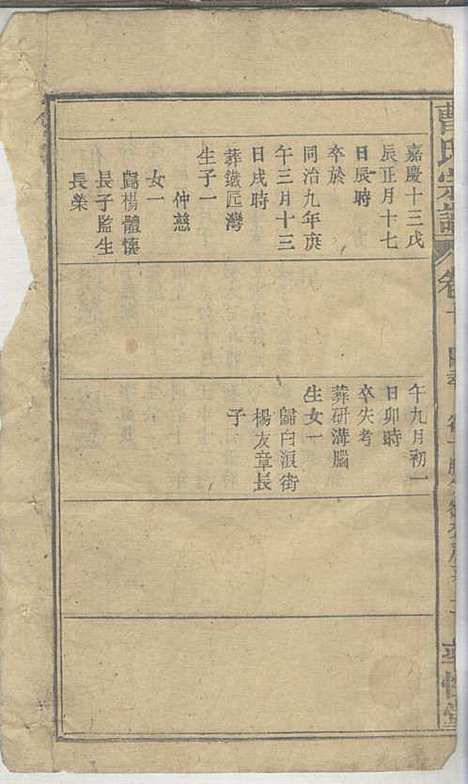 曹氏宗譜
卷
嘉慶十三戊
辰正月十七
日辰時
卒於
同治九年庚
午三月十三
日戌時
葬鐵匠灣
生子一
仲慈
女一
歸楊體慎
長子監生
長榮
午九月初一
日卯時
卒失考
葬研溝腦
生女一
歸白浪街
楊友章長
子